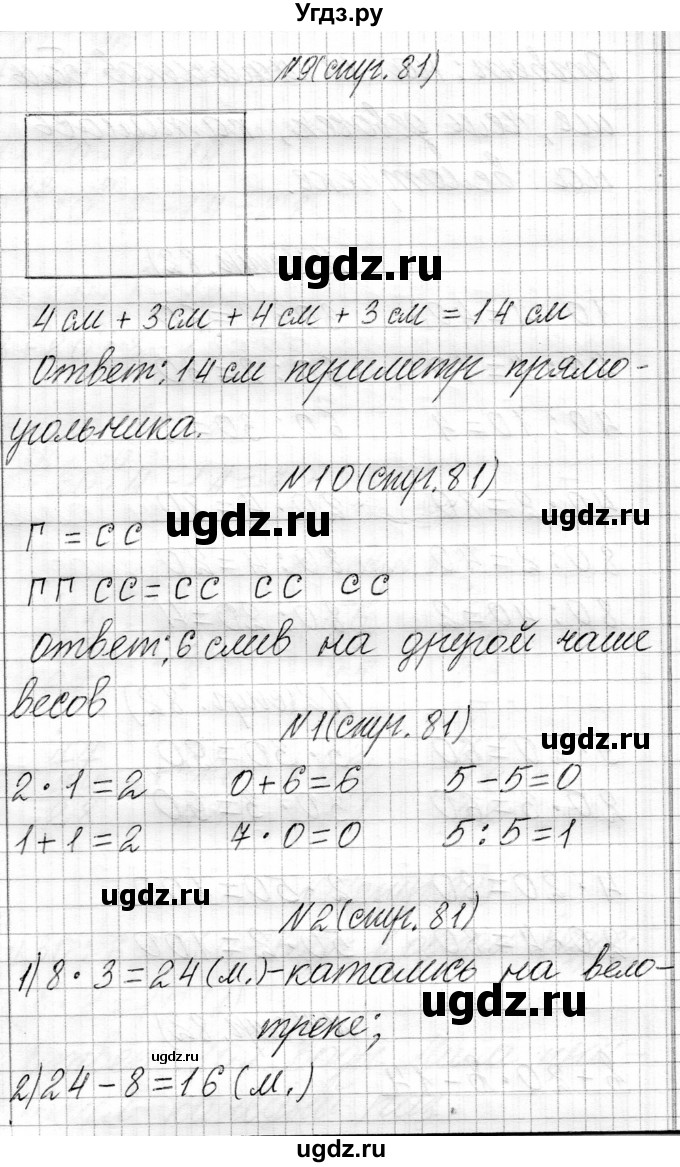 Угдз.ру
№9(стр. 81)
ugdz.ru
4 см + 3 см + 4 см + 3 см = 14 см
Ответ: 14 см периметр прямо-
угольника.
№10(стр. 81)
Г = С С
ugdz.ru
ugdz.ru
Г Г С С = С С С С С С
Ответ: 6 слив на другой чаше
весов
№1(стр. 81)
ugdz.ru
2 · 1 = 2 0 + 6 = 6 5 - 5 = 0
1 + 1 = 2 7 · 0 = 0 5 : 5 = 1
ugdz.ru
№2(стр. 81)
1) 8 · 3 = 24 (м.) - катались на вело-
ugdz.ru
треке;
ugdz.ru
2) 24 - 8 = 16 (м.)
ugdz.ru